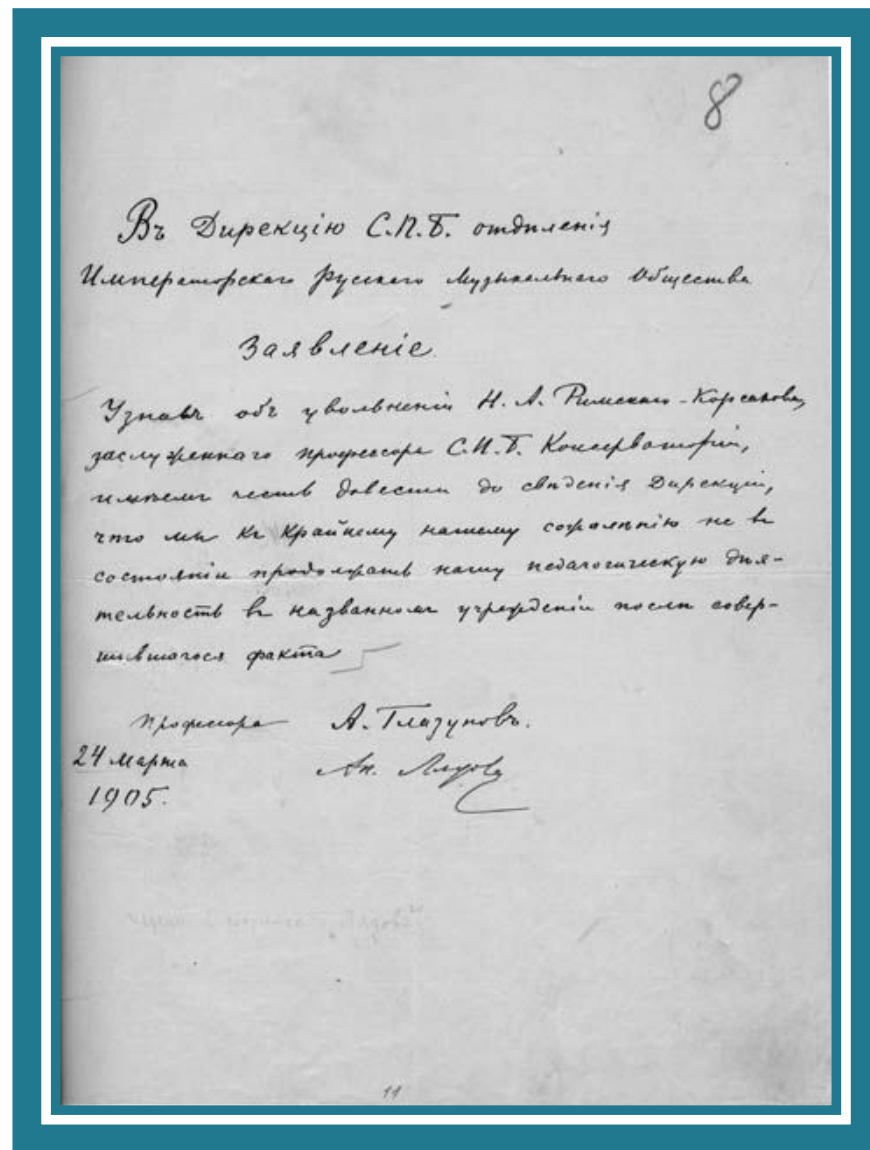 8
Въ Дирекцію С.П.Б. отдѣленія
Императорскаго Русскаго Музыкальнаго Общества
Заявленіе.
Узнавъ объ увольненіи Н. А. Римскаго-Корсакова,
заслуженнаго профессора С.П.Б. Консерваторіи,
имѣемъ честь довести до свѣденія Дирекціи,
что мы къ крайнему нашему сожалѣнію не въ
состояніи продолжать нашу педагогическую дѣя-
тельность въ названномъ учрежденіи послѣ совер-
шившагося факта
Профессора А. Глазуновъ.
24 марта Ан. Лядовъ
1905.
11